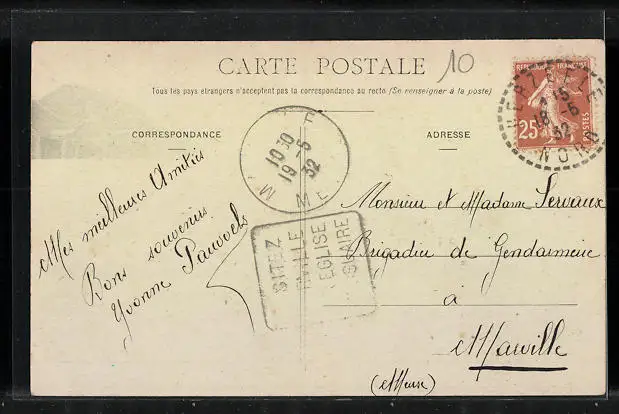 CARTE POSTALE
10
Tous les pays étrangers n'acceptent pas la correspondance au recto (Se renseigner à la poste)
CORRESPONDANCE
ADRESSE
REPUBLIQUE FRANÇAISE
25
POSTES
HERZEELE
18 - 5
32
NORD
1030
19 - 5
32
M
ME
Mes meilleures Amitiés
Bons souvenirs
Yvonne Pauwels
SITEZ
VILLE
EGLISE
ULAIRE
Monsieur et Madame Servaux
Brigadier de Gendarmerie
à
Marville
(Meuse)